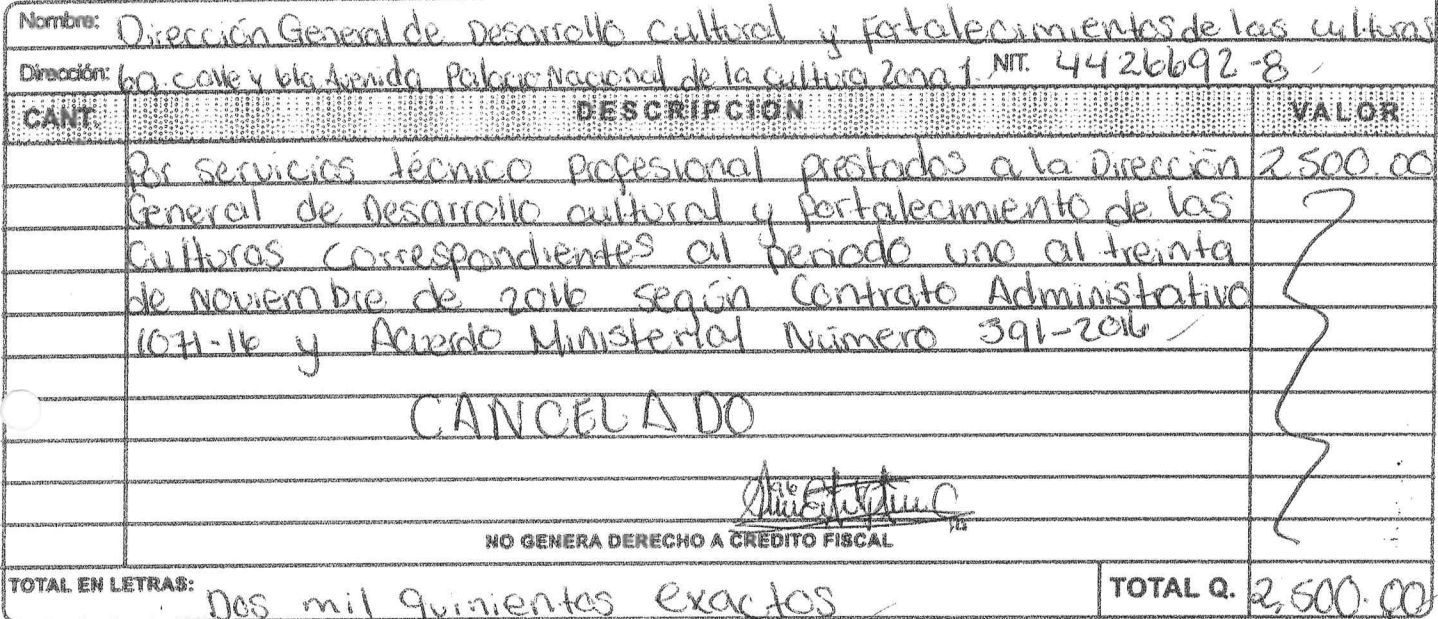 Nombre: Dirección General de Desarrollo Cultural y Fortalecimientos de las culturas
Dirección: 6a. calle y 6ta Avenida Palacio Nacional de la Cultura Zona 1. NIT. 4426692-8
CANT. DESCRIPCION VALOR
Por servicios técnico profesional prestados a la Dirección 2,500.00
General de Desarrollo cultural y fortalecimiento de las
Culturas correspondientes al periodo uno al treinta
de Noviembre de 2016 según Contrato Administrativo
1071-16 y Acuerdo Ministerial Número 391-2016
CANCELADO
NO GENERA DERECHO A CREDITO FISCAL
TOTAL EN LETRAS: Dos mil quinientos exactos TOTAL Q. 2,500.00